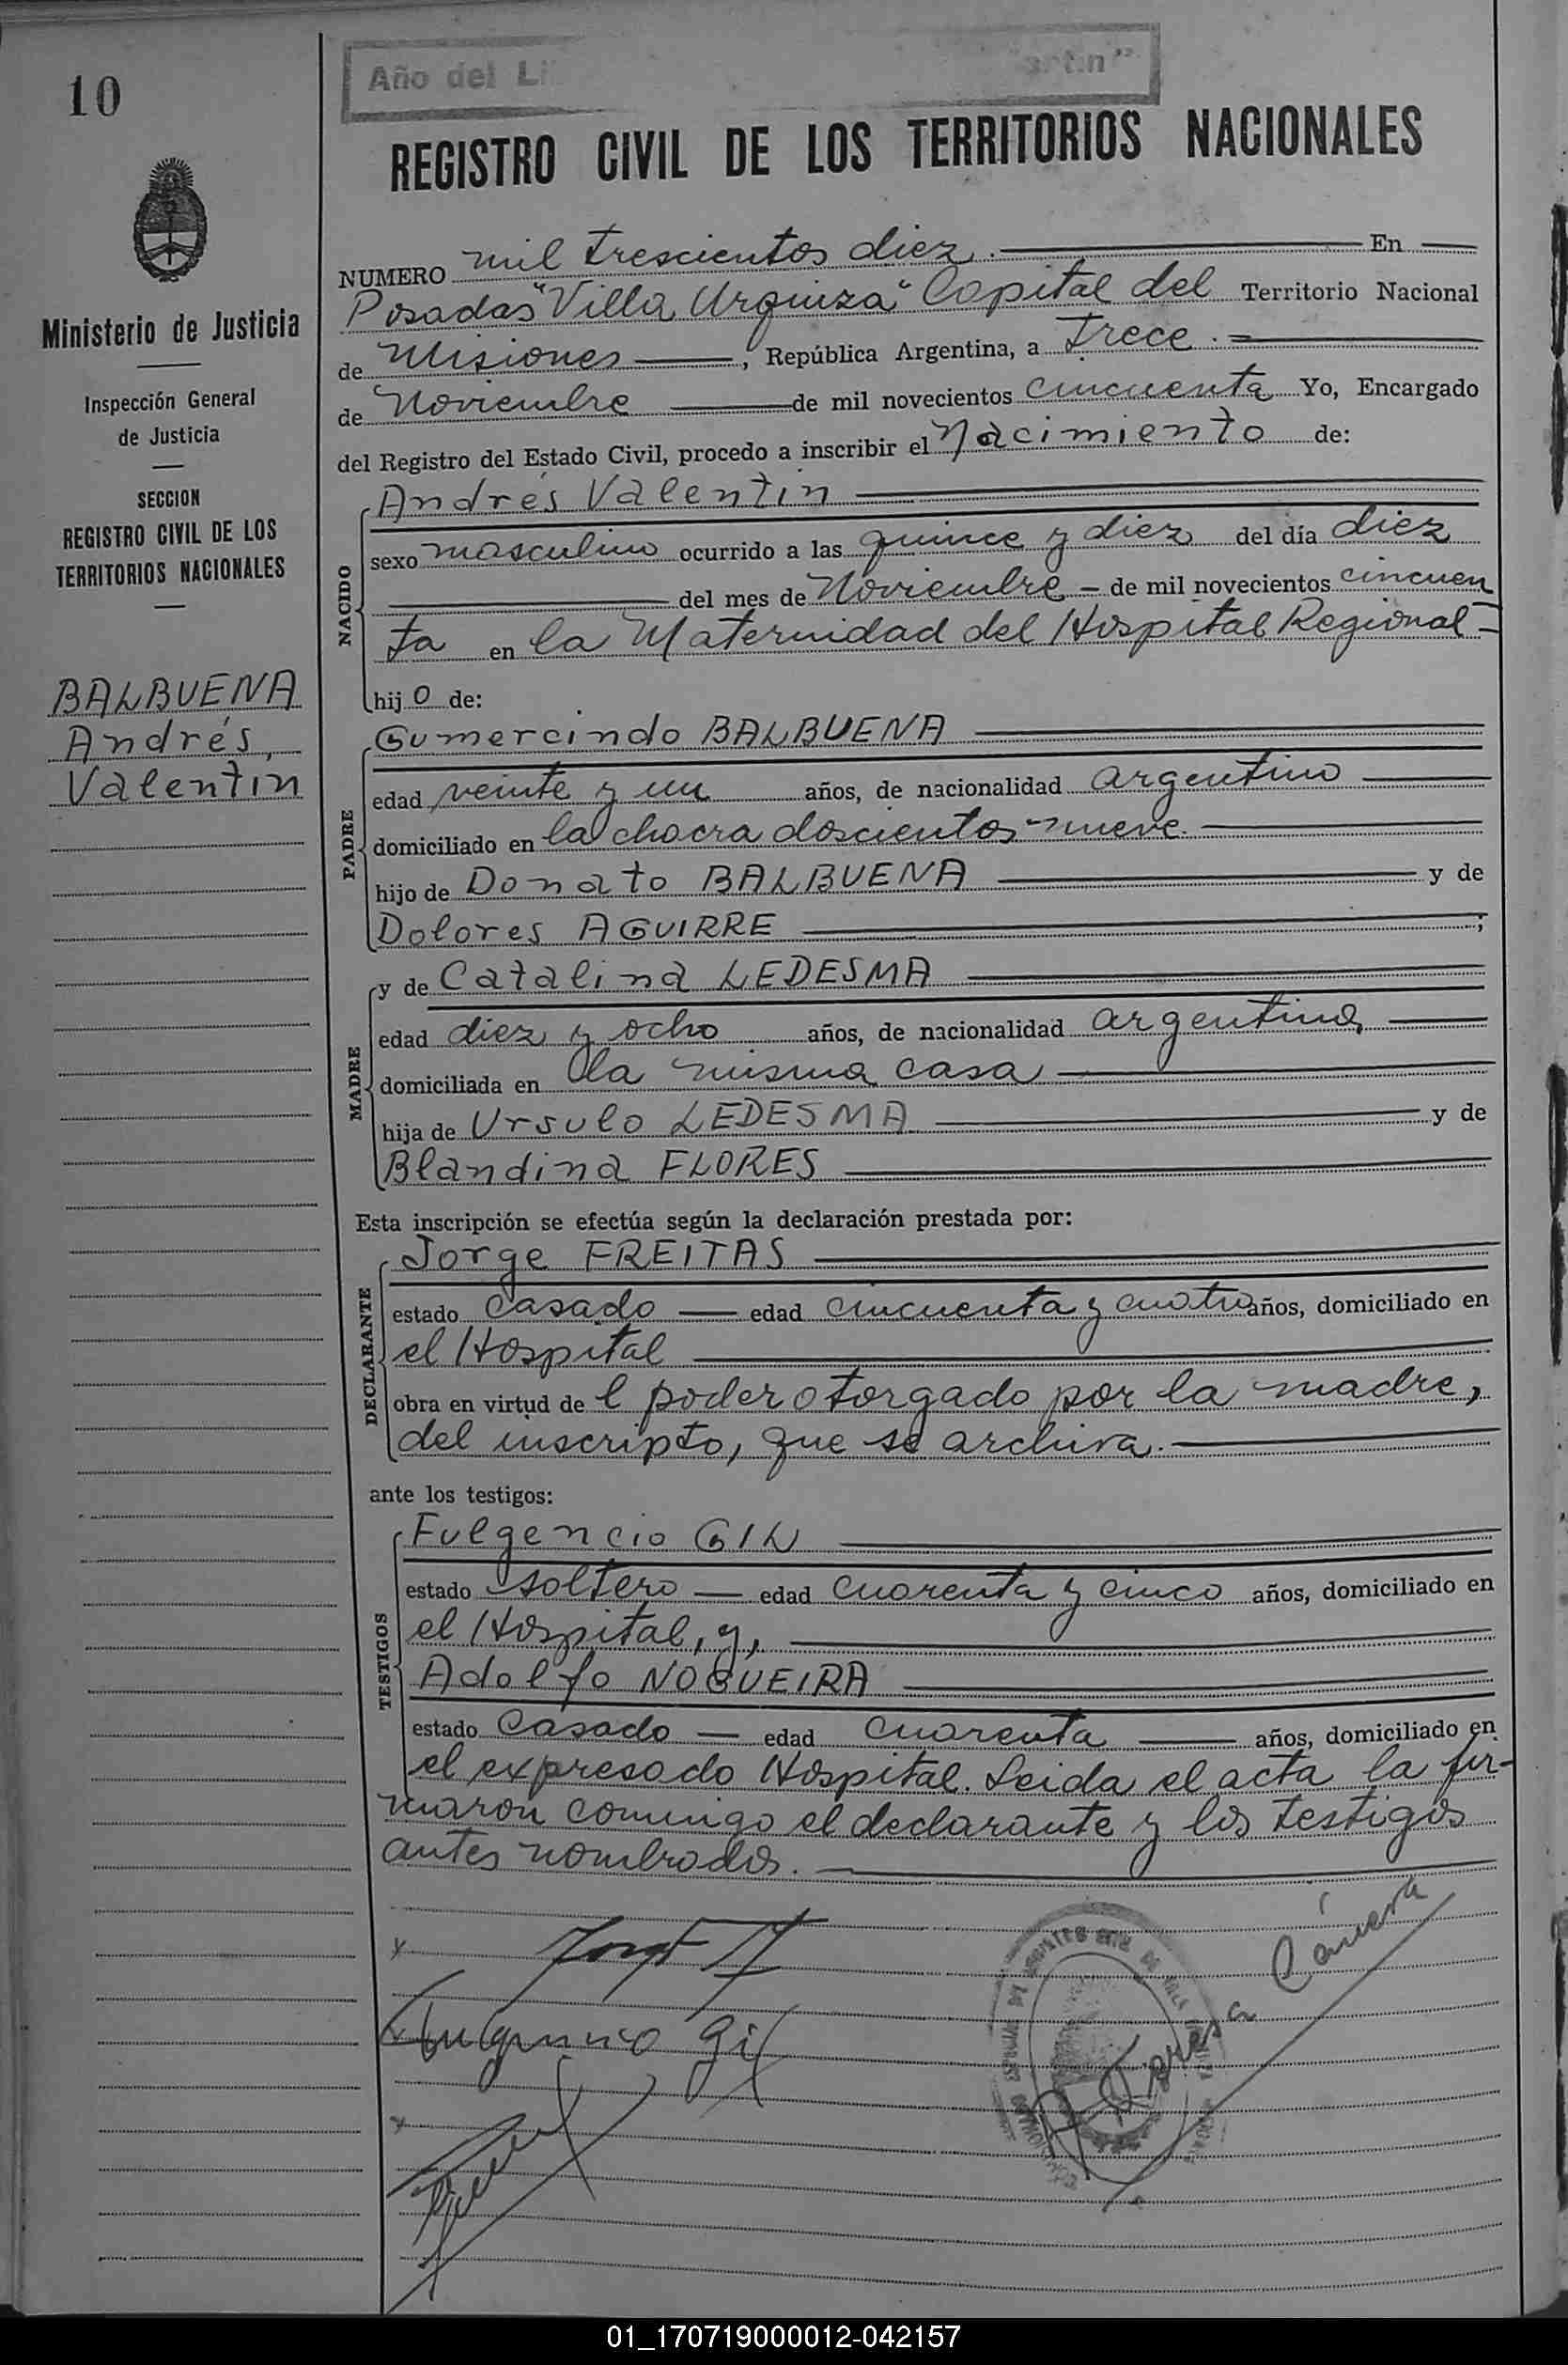 10
Año del Li
REGISTRO CIVIL DE LOS TERRITORIOS NACIONALES
Ministerio de Justicia
Inspección General
de Justicia
SECCION
REGISTRO CIVIL DE LOS
TERRITORIOS NACIONALES
BALBUENA
Andrés,
Valentín
NUMERO mil trescientos diez. En
Posadas "Villa Urquiza" Capital del Territorio Nacional
de Misiones, República Argentina, a trece.
de Noviembre de mil novecientos cincuenta Yo, Encargado
del Registro del Estado Civil, procedo a inscribir el Nacimiento de:
NACIDO
Andrés Valentín
sexo masculino ocurrido a las quince y diez del día diez
del mes de Noviembre - de mil novecientos cincuen
ta en la Maternidad del Hospital Regional -
hijo de:
PADRE
Gumercindo BALBUENA
edad veinte y un años, de nacionalidad argentino
domiciliado en la chacra doscientos nueve.
hijo de Donato BALBUENA y de
Dolores AGUIRRE ;
MADRE
y de Catalina LEDESMA
edad diez y ocho años, de nacionalidad argentina,
domiciliada en la misma casa
hija de Ursulo LEDESMA y de
Blandina FLORES
Esta inscripción se efectúa según la declaración prestada por:
DECLARANTE
Jorge FREITAS
estado casado edad cincuenta y cuatro años, domiciliado en
el Hospital
obra en virtud de l poder otorgado por la madre,
del inscripto, que se archiva.
ante los testigos:
TESTIGOS
Fulgencio GIL
estado soltero edad cuarenta y cinco años, domiciliado en
el Hospital, y,
Adolfo NOGUEIRA
estado casado edad cuarenta años, domiciliado en
el expresado Hospital. Leida el acta la fir-
maron conmigo el declarante y los testigos
antes nombrados.
Fulgencio Gil
01_170719000012-042157